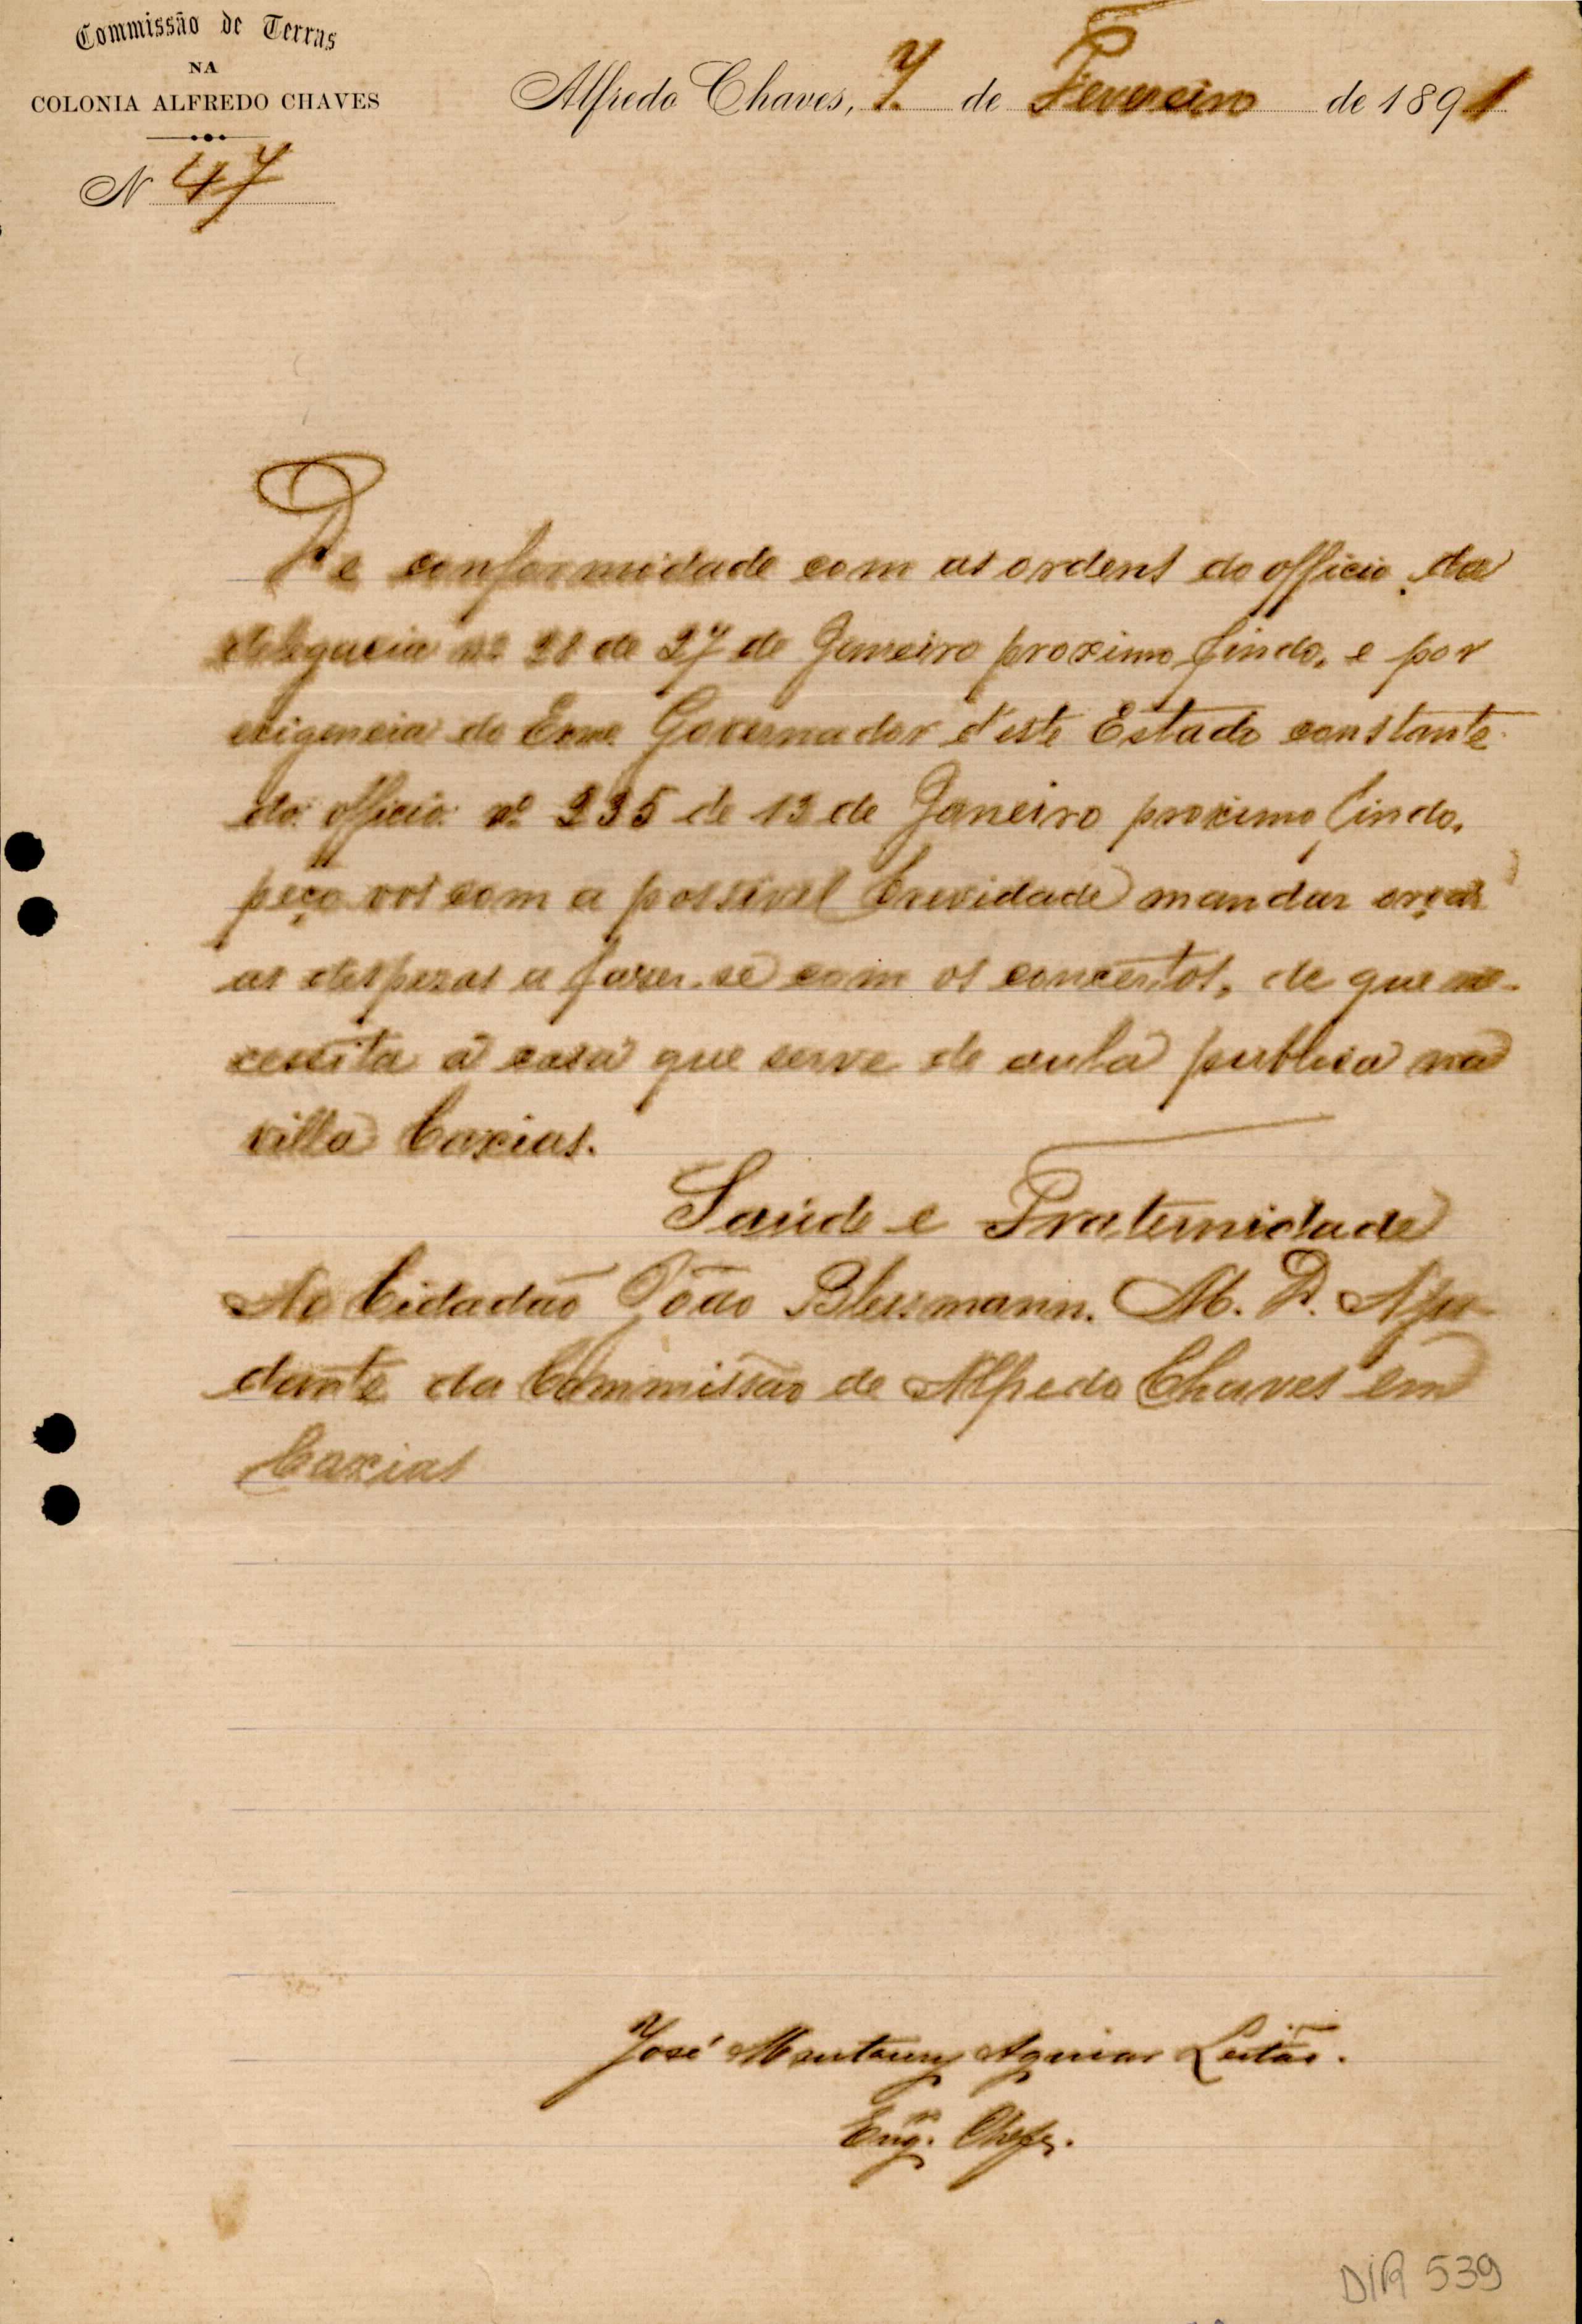 Commissão de Terras
NA
COLONIA ALFREDO CHAVES
Alfredo Chaves, 7. de Fevereiro de 1891
N 47
De conformidade com as ordens do officio da
delegacia nº 28 de 27 de Janeiro proximo findo, e por
exigencia do Exmo. Governador d'este Estado constante
do officio nº 235 de 13 de Janeiro proximo findo,
peço vos com a possivel brevidade mandar orçar
as despezas a fazer-se com os concertos, de que ne-
cessita a casa que serve de aula publica na
villa Caxias.
Saúde e Fraternidade
Ao Cidadão João Blessmann. M. D. Aju-
dante da Commissão de Alfredo Chaves em
Caxias
José Montaury Aguiar Leitão.
Engº. Chefe.
DIR 539